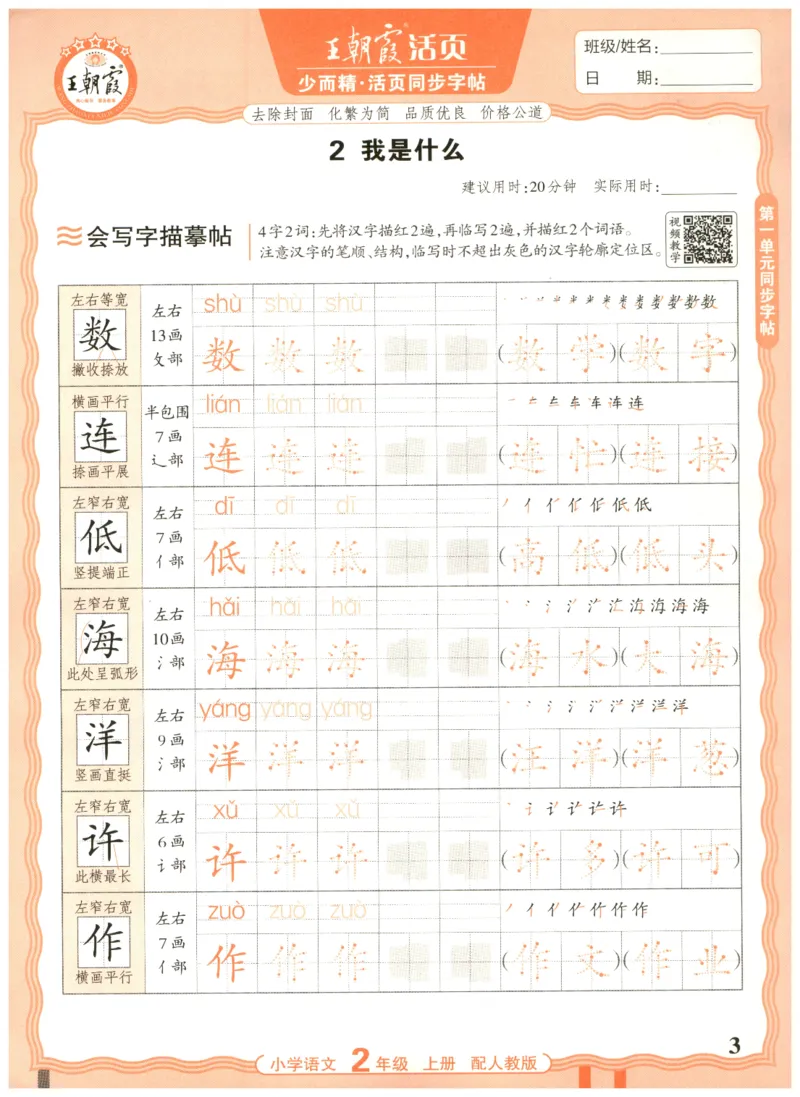 王朝霞
王朝霞活页
少而精·活页同步字帖
班级/姓名：
日 期：
去除封面 化繁为简 品质优良 价格公道
2 我是什么
建议用时：20分钟 实际用时：
会写字描摹帖
4字2词：先将汉字描红2遍，再临写2遍，并描红2个词语。
注意汉字的笔顺、结构，临写时不超出灰色的汉字轮廓定位区。
视频教学
第一单元同步字帖
左右等宽
数
撇收捺放
左右
13画
攵部
shù shù shù
数 数 数
（数学）（数字）
横画平行
连
捺画平展
半包围
7画
辶部
lián lián lián
连 连 连
（连忙）（连接）
左窄右宽
低
竖提端正
左右
7画
亻部
dī dī dī
低 低 低
（高低）（低头）
左窄右宽
海
此处呈弧形
左右
10画
氵部
hǎi hǎi hǎi
海 海 海
（海水）（大海）
左窄右宽
洋
竖画直挺
左右
9画
氵部
yáng yáng yáng
洋 洋 洋
（汪洋）（洋葱）
左窄右宽
许
此横最长
左右
6画
讠部
xǔ xǔ xǔ
许 许 许
（许多）（许可）
左窄右宽
作
横画平行
左右
7画
亻部
zuò zuò zuò
作 作 作
（作文）（作业）
小学语文 2年级 上册 配人教版
3